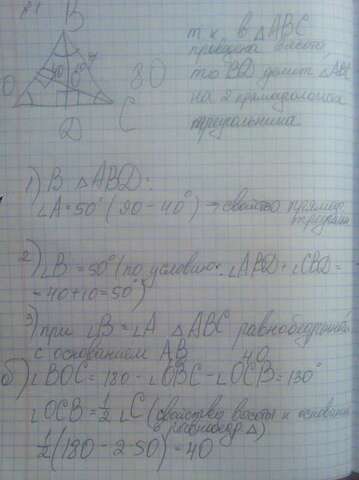 №1
B
т.к. в △ABC
проведена высота,
40
10
то BD делит △ABC
на 2 прямоугольных
D
C
треугольника
1) В △ABD:
∠A=50° (90-40°) → свойство прямоуг.
2) ∠B=50° (по условию: ∠ABD+∠CBD=
=40+10=50°)
3) при ∠B=∠A △ABC равнобедренный
с основанием AB
40
б) ∠BOC=180-∠OBC-∠OCB=130°
∠OCB=½∠C (свойство высоты к основанию
в равнобедр △)
½(180-2·50)=40